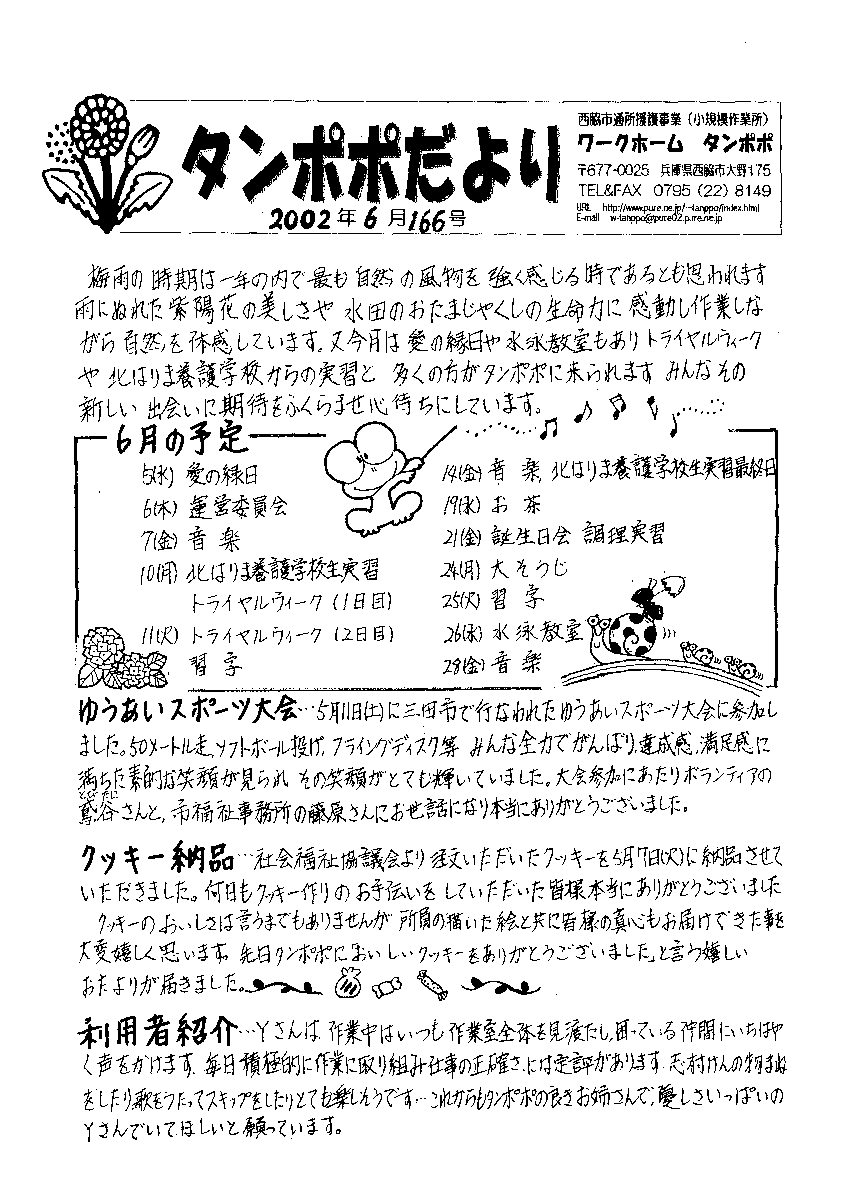 西脇市通所援護事業（小規模作業所）
ワークホーム　タンポポ
〒677-0025　兵庫県西脇市大野175
TEL&FAX　0795（22）8149
URL　http://www.pure.ne.jp/~tanppo/index.html
E-mail　w-tanppo@pure02.pure.ne.jp
タンポポだより
2002年6月166号
梅雨の時期は一年の内で最も自然の風物を強く感じる時であるとも思われます
雨にぬれた紫陽花の美しさや水田のおたまじゃくしの生命力に感動し作業しな
がら自然を体感しています。又今月は愛の縁日や水泳教室もありトライヤルウィーク
や北はりま養護学校からの実習と多くの方がタンポポに来られます みんなその
新しい出会いに期待をふくらませ心待ちにしています。
6月の予定
5(水) 愛の縁日
6(木) 運営委員会
7(金) 音楽
10(月) 北はりま養護学校生実習
トライヤルウィーク（1日目）
11(火) トライヤルウィーク（2日目）
習字
14(金) 音楽、北はりま養護学校生実習最終日
19(水) お茶
21(金) 誕生日会 調理実習
24(月) 大そうじ
25(火) 習字
26(水) 水泳教室
28(金) 音楽
ゆうあいスポーツ大会…5月11日(土)に三田市で行なわれたゆうあいスポーツ大会に参加し
ました。50メートル走、ソフトボール投げ、フライングディスク等 みんな全力でがんばり、達成感、満足感に
満ちた素的な笑顔が見られ その笑顔がとても輝いていました。大会参加にあたりボランティアの
鳶谷さんと、市福祉事務所の藤原さんにお世話になり本当にありがとうございました。
クッキー納品…社会福祉協議会より注文いただいたクッキーを5月7日(火)に納品させて
いただきました。何日もクッキー作りのお手伝いをしていただいた皆様本当にありがとうございました
クッキーのおいしさは言うまでもありませんが 所員の描いた絵と共に皆様の真心もお届けできた事を
大変嬉しく思います。先日タンポポに「おいしいクッキーをありがとうございました」と言う嬉しい
おたよりが届きました。
利用者紹介…Yさんは、作業中はいつも作業室全体を見渡たし、困っている仲間にいちはや
く声をかけます。毎日積極的に作業に取り組み仕事の正確さには定評があります。志村けんの物まね
をしたり、歌をうたってスキップをしたりとても楽しそうです…これからもタンポポの良きお姉さんで、優しさいっぱいの
Yさんでいてほしいと願っています。